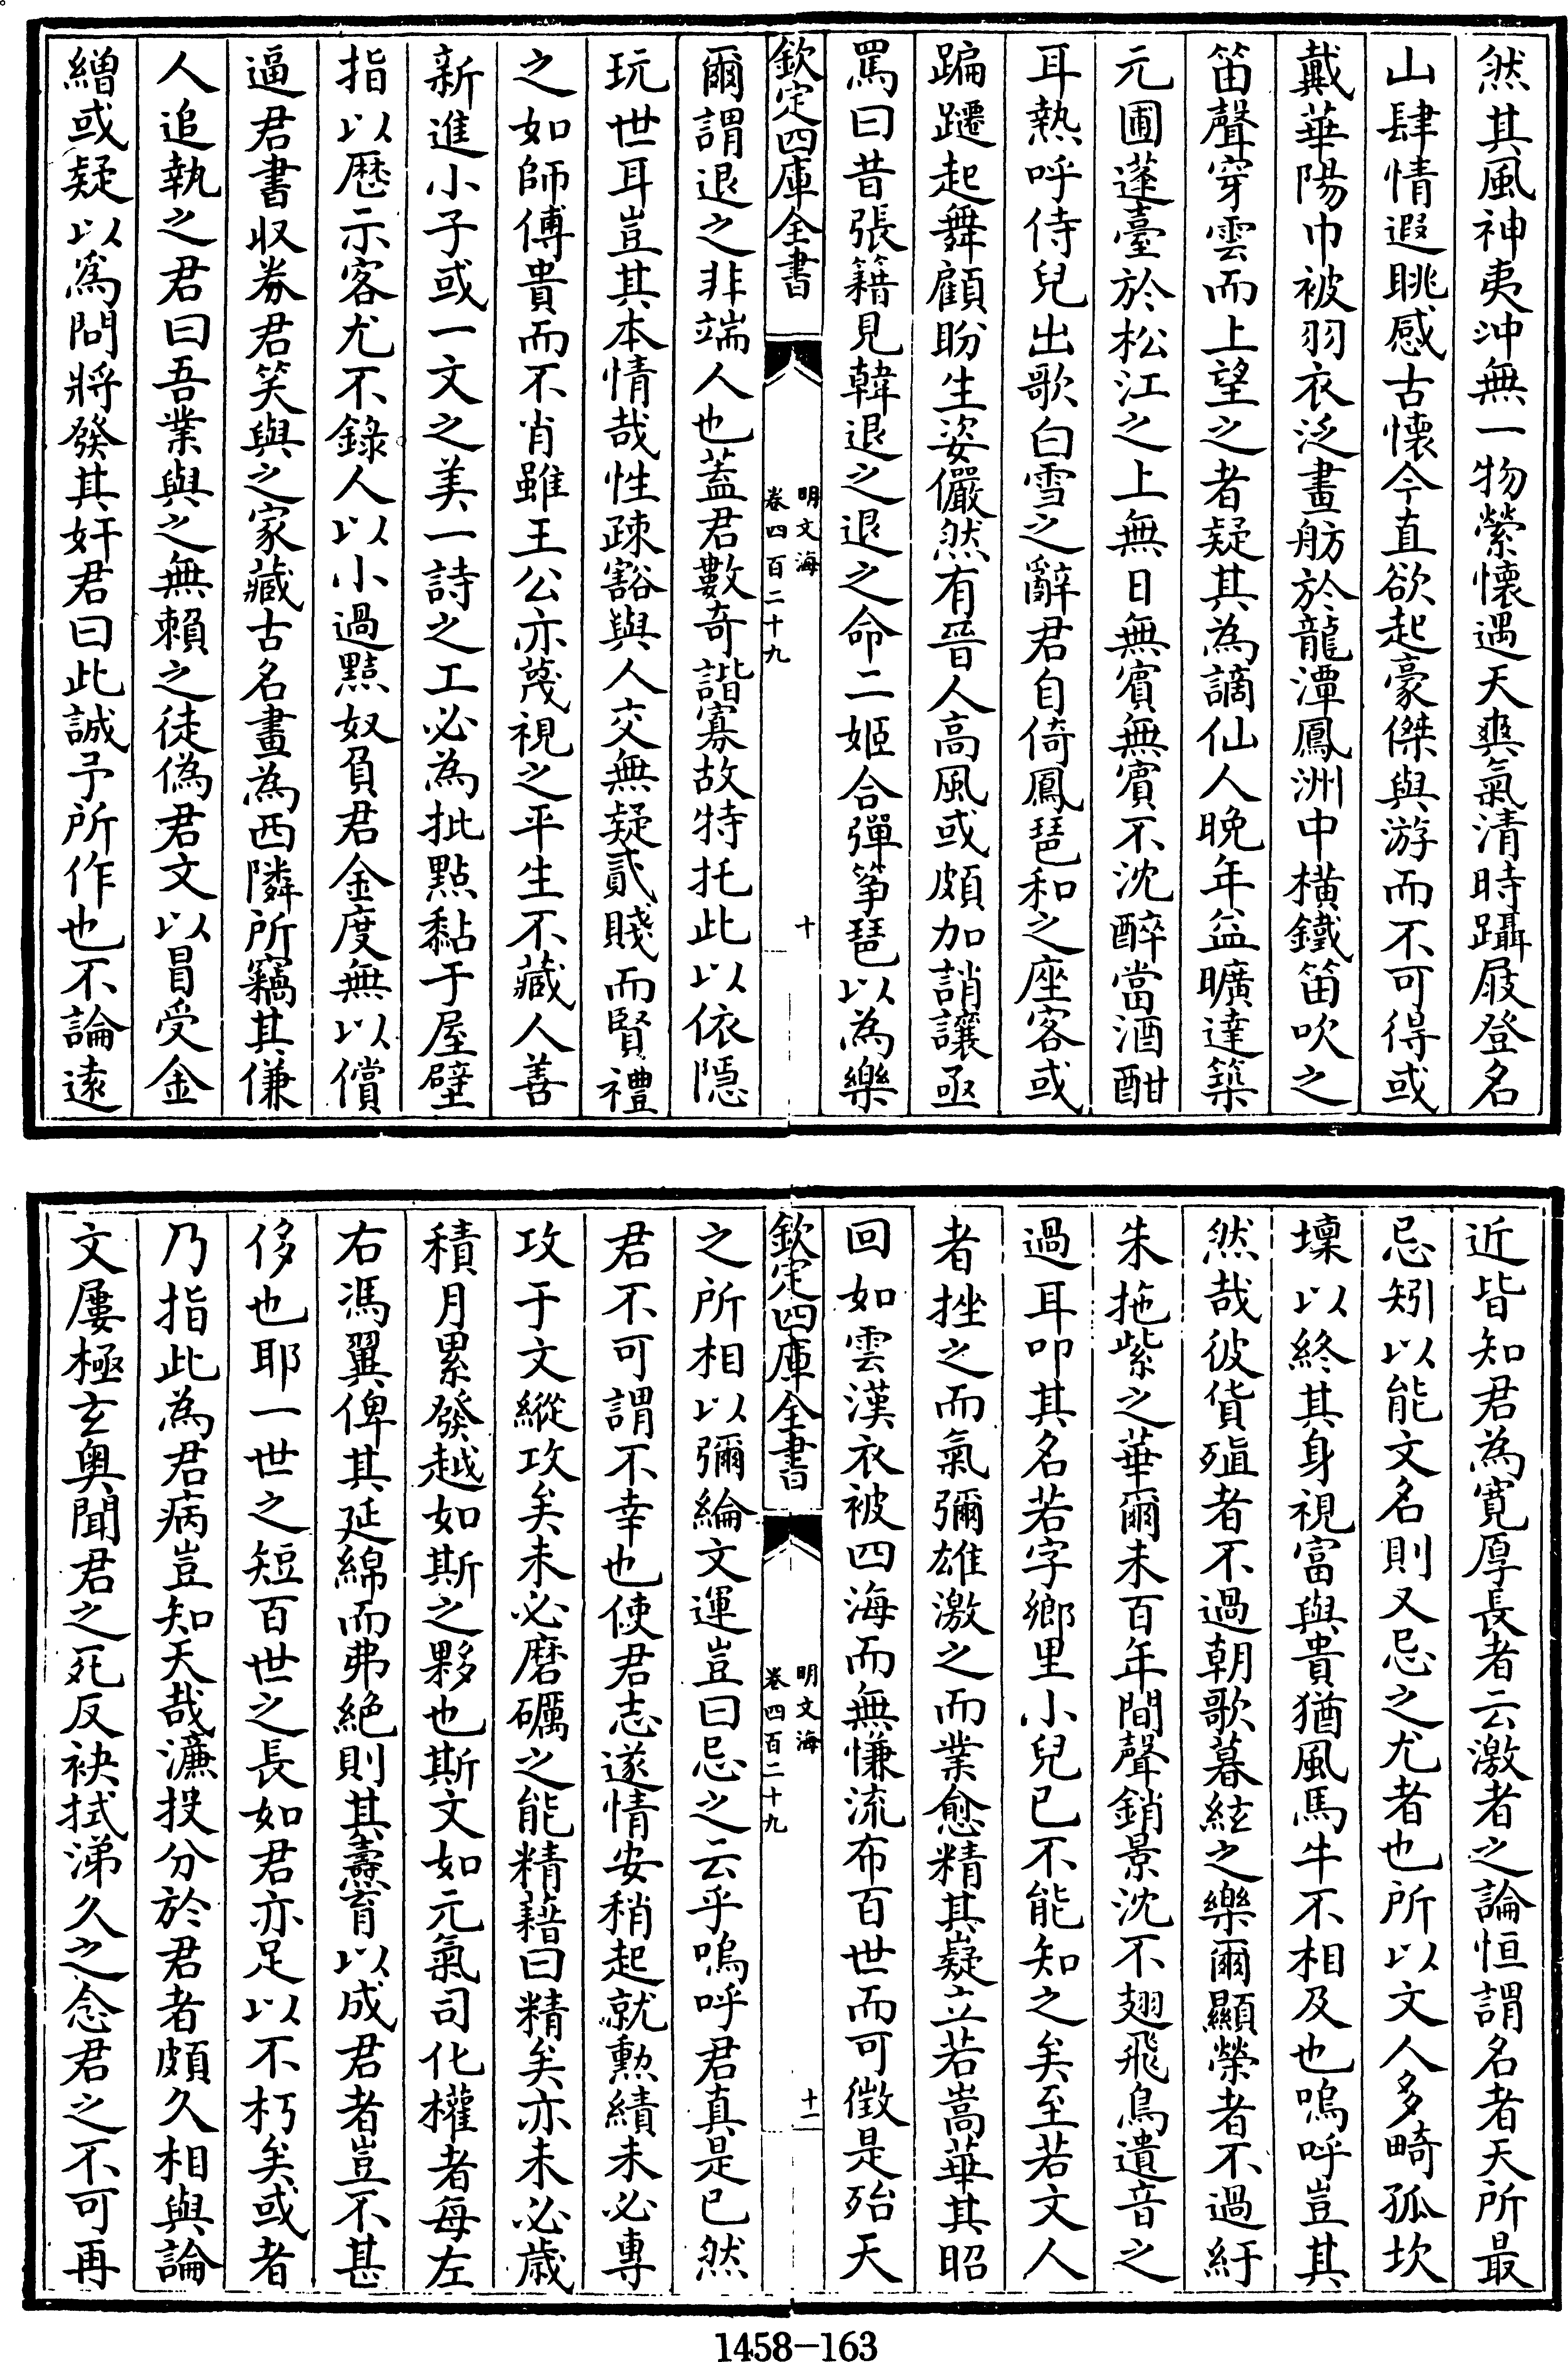 然其風神夷沖無一物縈懷遇天爽氣清時躡屐登名
山肆情遐眺感古懷今直欲起豪傑與游而不可得或
戴華陽巾被羽衣泛畫舫於龍潭鳳洲中橫鐵笛吹之
笛聲穿雲而上望之者疑其為謫仙人晚年益曠達築
元圃蓬臺於松江之上無日無賓無賓不沈醉當酒酣
耳熱呼侍兒出歌白雪之辭君自倚鳳琶和之座客或
蹁躚起舞顧盼生姿儼然有晉人高風或頗加誚讓亟
罵曰昔張籍見韓退之退之命二姬合彈箏琶以為樂
欽定四庫全書
明文海
卷四百二十九
十
爾謂退之非端人也蓋君數奇諧寡故特托此以依隱
玩世耳豈其本情哉性疎豁與人交無疑貳賤而賢禮
之如師傅貴而不肖雖王公亦蔑視之平生不藏人善
新進小子或一文之美一詩之工必為批點黏于屋壁
指以歷示客尤不錄人以小過黠奴負君金度無以償
逼君書収券君笑與之家藏古名畫為西隣所竊其傔
人追執之君曰吾業與之無賴之徒偽君文以冒受金
繒或疑以爲問將發其奸君曰此誠予所作也不論遠
近皆知君為寛厚長者云激者之論恒謂名者天所最
忌矧以能文名則又忌之尤者也所以文人多畸孤坎
壈以終其身視富與貴猶風馬牛不相及也嗚呼豈其
然哉彼貨殖者不過朝歌暮絃之樂爾顯榮者不過紆
朱拖紫之華爾未百年間聲銷景沈不翅飛鳥遺音之
過耳叩其名若字鄉里小兒已不能知之矣至若文人
者挫之而氣彌雄激之而業愈精其嶷立若嵩華其昭
回如雲漢衣被四海而無慊流布百世而可徵是殆天
欽定四庫全書
明文海
卷四百二十九
十一
之所相以彌綸文運豈曰忌之云乎嗚呼君真是已然
君不可謂不幸也使君志遂情安稍起就勲績未必專
攻于文縱攻矣未必磨礪之能精藉曰精矣亦未必歳
積月累發越如斯之夥也斯文如元氣司化權者每左
右馮翼俾其延綿而弗絕則其燾育以成君者豈不甚
侈也耶一世之短百世之長如君亦足以不朽矣或者
乃指此為君病豈知天哉濂投分於君者頗久相與論
文屢極玄奥聞君之死反袂拭涕久之念君之不可再
1458-163